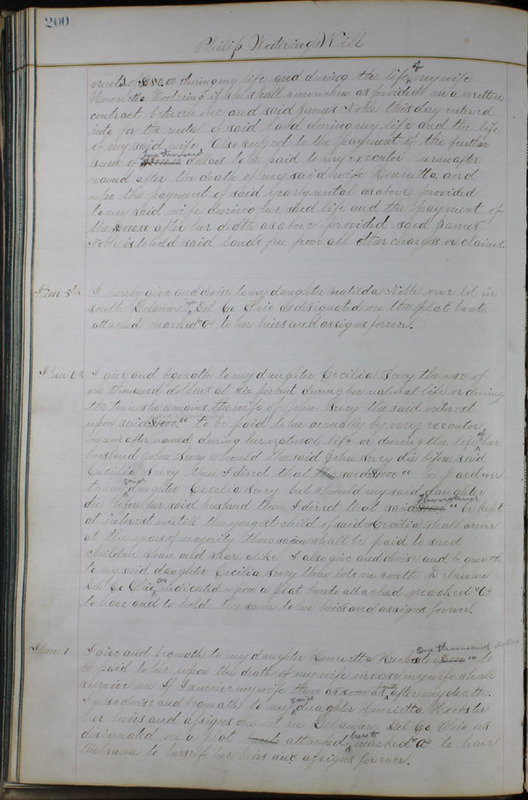 200
Philip Will
during my life and during the life of my wife
Henrietta if she shall survive me as provided in a written
contract between me and said James Noble this day entered
into for the rental of said land during my life and the life
of my said wife. Also subject to the payment of the further
sum of one thousand dollars to be paid to my executor hereinafter
named after the death of my said wife Henrietta and
upon the payment of said yearly rental as above provided
to my said wife during her said life and the payment of
the same after her death as above provided said James
Noble is to hold said lands free from all other charges or claims.
Item 5th I hereby give and devise to my daughter Matilda Noble one lot in
South Delaware Del Co Ohio as designated on the plat hereto
attached marked to her heirs and assigns forever.
Item 6th I give and bequeath to my daughter Cecilia the use of
one thousand dollars at six per cent during her natural life or during
the time she remains the wife of John the said interest
upon said to be paid to her annually by my executor
hereinafter named during her natural life or during the life of her
husband John should the said John die before said
Cecilia then I direct that the said be paid over
to my said daughter Cecilia but should my said daughter
die before her said husband then I direct that said thousand be kept
at interest until the youngest child of said Cecilia shall arrive
at the years of majority then same shall be paid to said
children share and share alike. I also give and devise and bequeath
to my said daughter Cecilia three lots in South Delaware
Del Co Ohio as indicated upon a plat hereto attached marked "C"
to have and to hold the same to her heirs and assigns forever.
Item I give and bequeath to my daughter Henrietta One thousand dollars to
be paid to her upon the death of my wife in case my wife shall
survive me If I survive my wife then as soon as after my death.
I also devise and bequeath to my said daughter Henrietta
her heirs and assigns one lot in Delaware Del Co Ohio as
designated in a plat attached hereto marked to have
the same to herself her heirs and assigns forever.